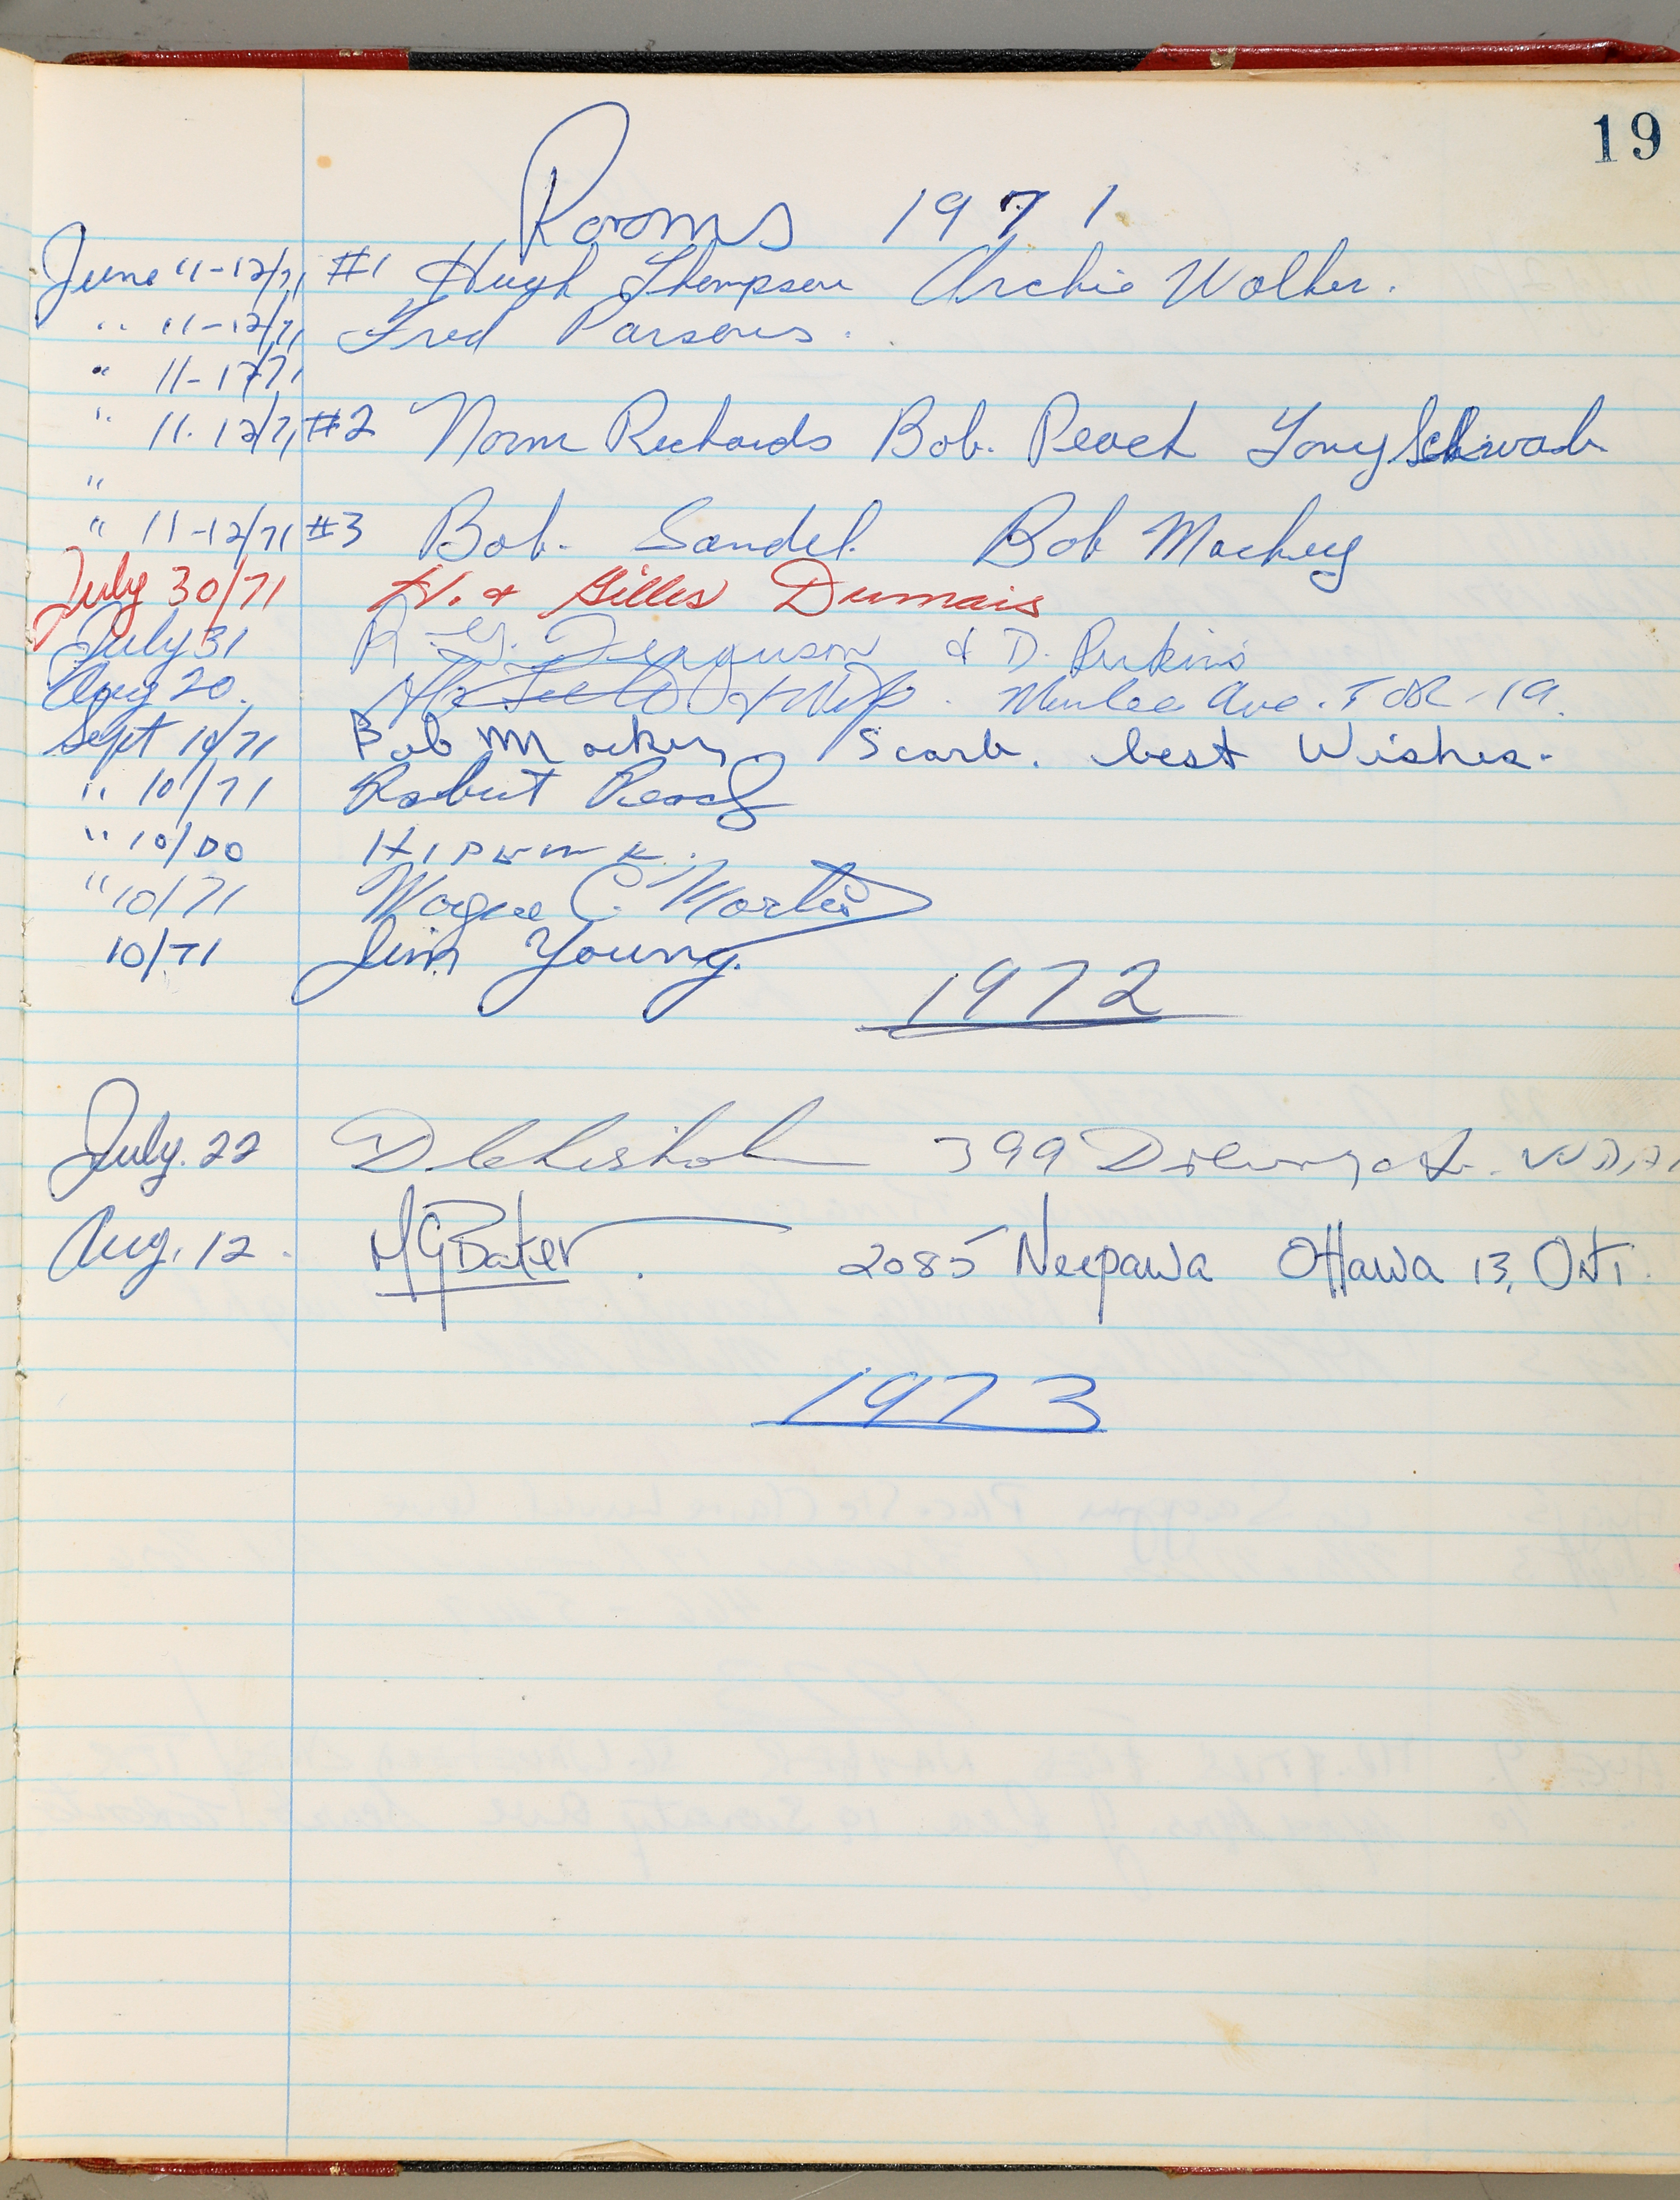 19
Rooms 1971
June 11-12/71 #1 Hugh Thompson Archie Walker.
" 11-12/71 Fred Parsons.
" 11-12/71
" 11.12/71 #2 Norm Richards Bob. Peach Tony Schwab
"
" 11-12/71 #3 Bob. Sandel. Bob Mackey
July 30/71 N. & Gilles Dumais
July 31 R. G. Ferguson & D. Perkins
Aug 20. Ave. TOR - 19.
Sept 10/71 Bob Mackey Scarb. best Wishes.
" 10/71 Robert Peach
" 10/DO
" 10/71 Wayne C. Martin
10/71 Jim Young.
1972
July. 22 D Chisholm 399
Aug. 12. MGBaker. 2085 Neepawa Ottawa 13, Ont.
1973